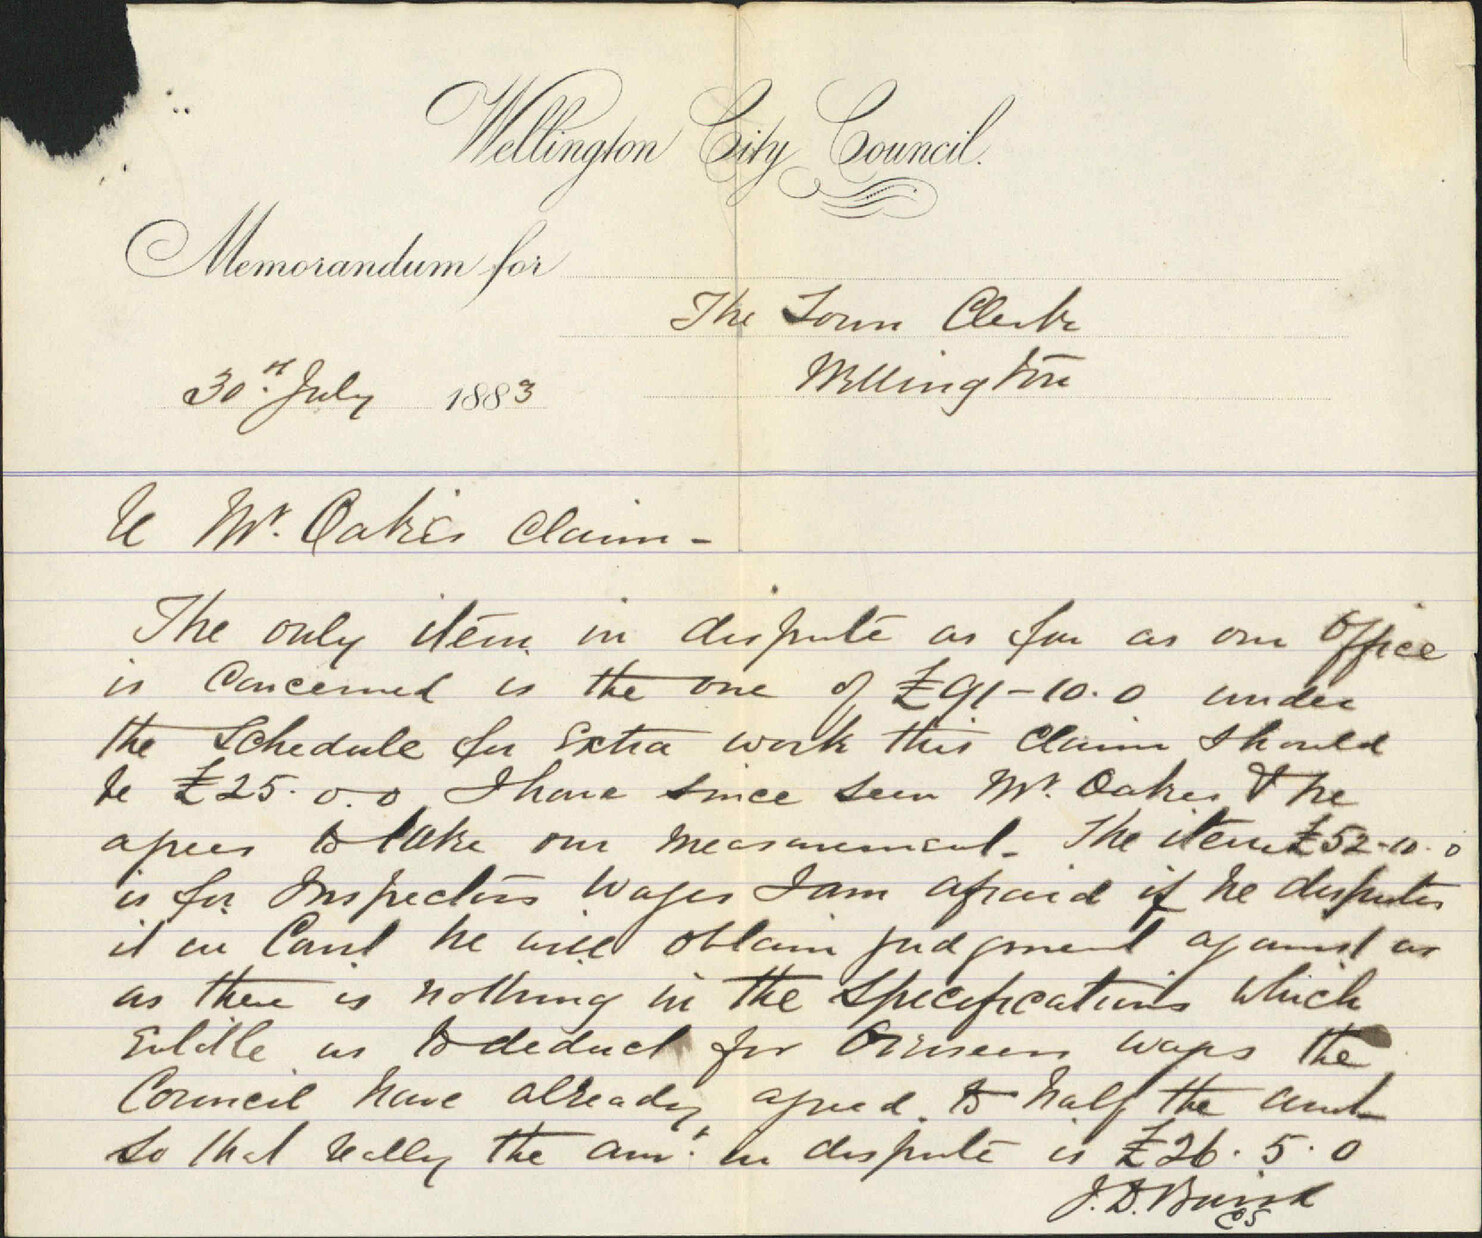 Wellington City Council.
Memorandum for
The Town Clerk
Wellington
30th July 1883
re Mr. Oakes claim -
The only item in dispute as far as our office
is concerned is the one of £91-10.0 under
the Schedule for Extra work this claim should
be £25. 0.0 I have since seen Mr. Oakes & he
agrees to take our measurement. The item £52-10.0
is for Inspectors wages I am afraid if he disputes
it in Court he will obtain judgment against us
as there is nothing in the Specifications which
Entitle us to deduct for Overseers wages the
Council have already agreed to half the amt
so that really the amt. in dispute is £26.5.0
J.D. Baird
CS